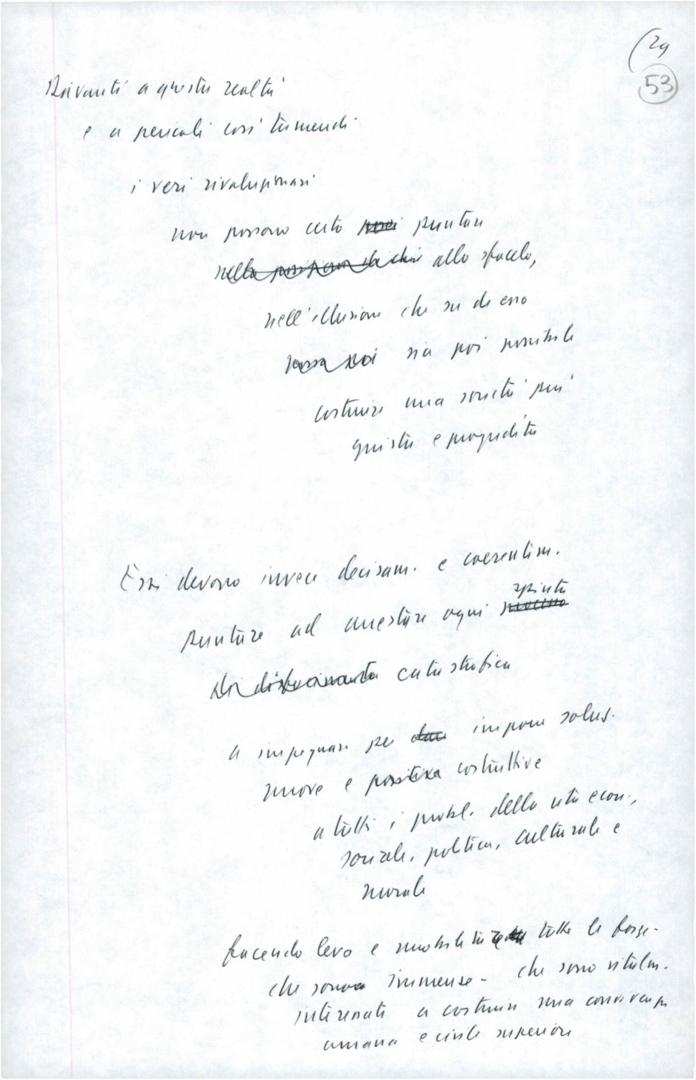 29
53
Davanti a questa realtà
e a pericoli così tremendi
i veri rivoluzionari
non possono certo puntare
nella posizione di chi allo sfacelo,
nell'illusione che su di esso
possa poi sia poi possibile
costruire una società più
giusta e progredita
Essi devono invece decisam. e coerentem.
spinta
puntare ad arrestare ogni processo
di disfacimento catastrofica
a impegnarsi per dare imporre soluz.
nuove e positive costruttive
a tutti i probl. della vita econ.,
sociale, politica, culturale e
morale
facendo leva e mobilitando tutte le forze -
che sono immense - che sono vitalm.
interessate a costruire una convivenza
umana e civile superiore